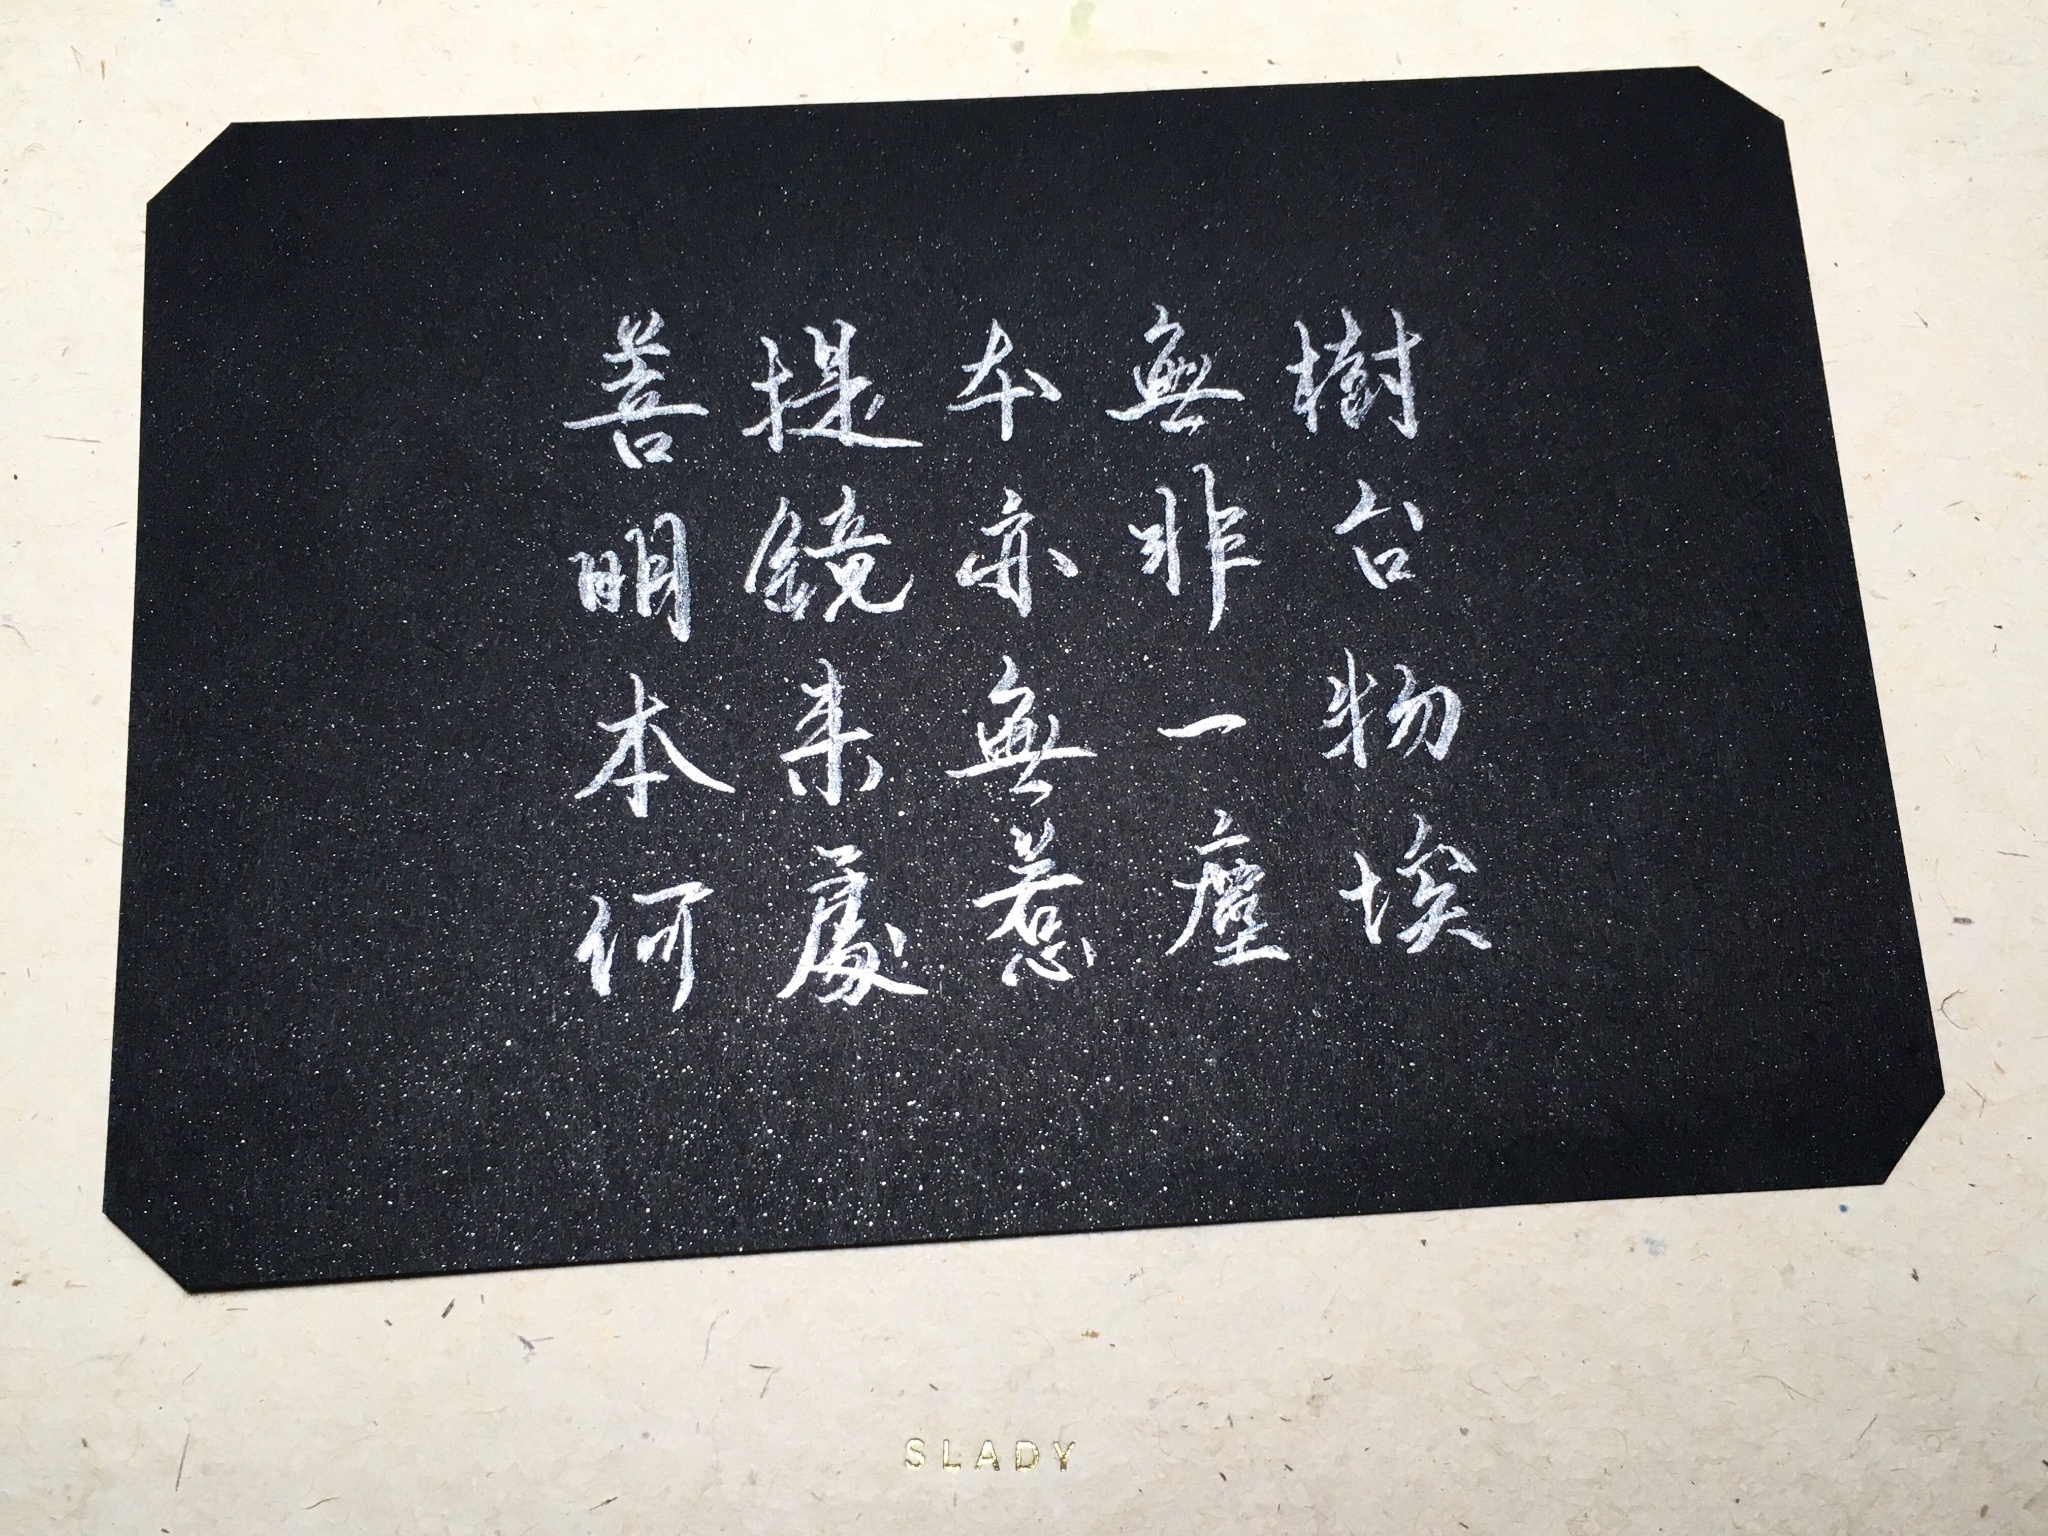 菩提本無樹
明鏡亦非台
本来無一物
何處惹塵埃
SLADY